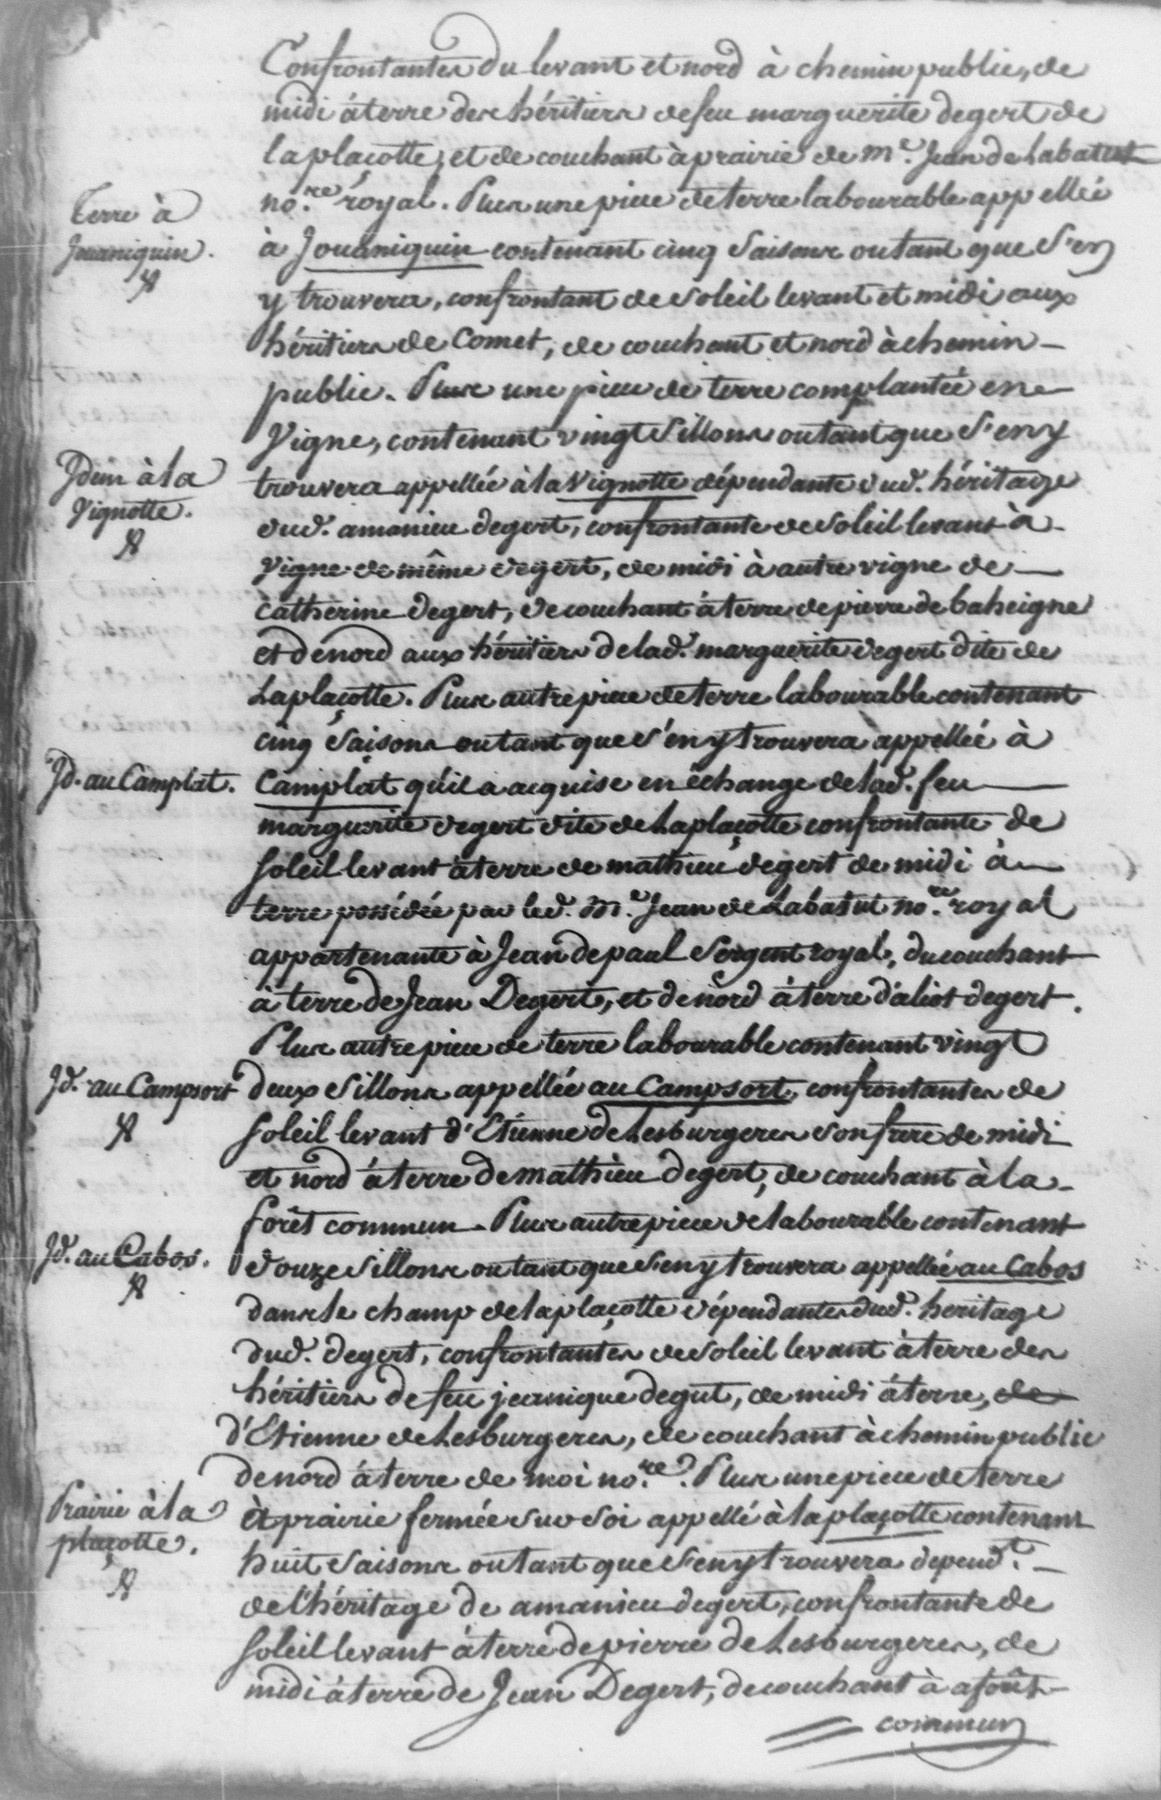 Confrontantes du levant et nord à chemin public, de
midi à terre des héritiers de feu marguerite degert de
laplaçotte, et de couchant à prairie de m.e Jean de Labatut
Terre à
Jouaniquin.
no.re royal. Plus une piece de terre labourable appellée
à Jouaniquin contenant cinq saisons ou tant que s'en
y trouvera, confrontant de soleil levant et midi aux
héritiers de Comet, de couchant et nord à chemin
public. Plus une piece de terre complantée en
vigne, contenant vingt sillons ou tant que s'en y
Idem à la
Vignotte.
trouvera appellée à la Vignotte dépendante dud. héritage
dud. amanieu degert, confrontante de soleil levant à
vigne de même degert, de midi à autre vigne de
catherine degert, de couchant à terre de pierre de baheigne
et de nord aux héritiers de lad. marguerite degert dite de
Laplaçotte. Plus autre piece de terre labourable contenant
cinq saisons ou tant que s'en y trouvera appellée à
Id. au Camplat.
Camplat qu'il a acquise en échange de lad. feu
marguerite degert dite de Laplaçotte confrontante de
soleil levant à terre de mathieu degert de midi à
terre possédée par led. M.e Jean de Labatut no.re royal
appartenante à Jean depaul sergent royal, du couchant
à terre de Jean Degert, et de nord à terre d'aliot degert.
Plus autre piece de terre labourable contenant vingt
Id. au Campsort
deux sillons appellée au Campsort, confrontantes de
soleil levant d'Etienne de Lesburgeres son frere de midi
et nord à terre de mathieu degert, de couchant à la
forêt commun. Plus autre piece de labourable contenant
Id. au Cabos.
douze sillons ou tant que s'en y trouvera appellée au Cabos
dans le champ de laplaçotte dépendantes dud. heritage
dud. degert, confrontantes de soleil levant à terre des
héritiers de feu jeanique degut, de midi à terre, de
d'Etienne de Lesburgeres, de couchant à chemin public
de nord à terre de moi no.re. Plus une piece de terre
Prairie à la
plaçotte.
à prairie fermée sur soi appellé à laplaçotte contenant
huit saisons ou tant que s'en y trouvera depend.t
de l'héritage de amanieu degert, confrontante de
soleil levant à terre de pierre de Lesburgeres, de
midi à terre de Jean Degert, de couchant à a foût
commun